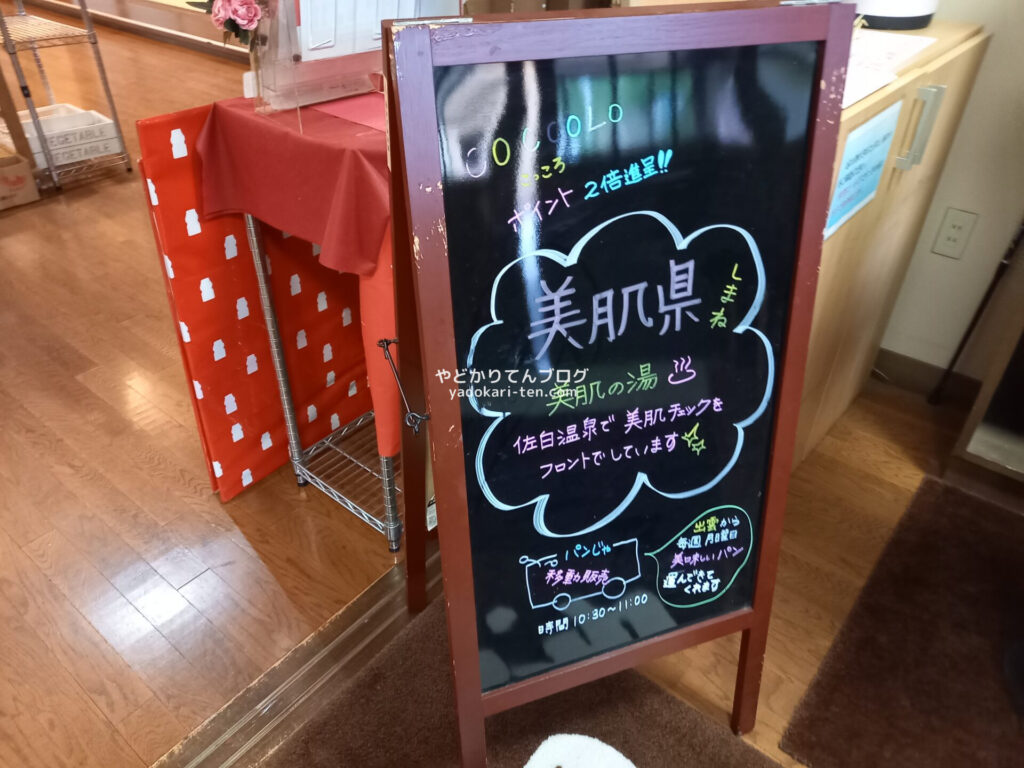 COCCOLO
こっころ
ポイント 2倍進呈!!
美肌県
しまね
やどかりてんブログ
yadokari-ten.com
美肌の湯
佐白温泉で 美肌チェックを
フロントでしています
パンじゃ
移動販売
時間 10:30~11:00
出雲から
毎週 月曜日
美味しいパン
運んできて
くれます
VEGETABLE
VEGETABLE